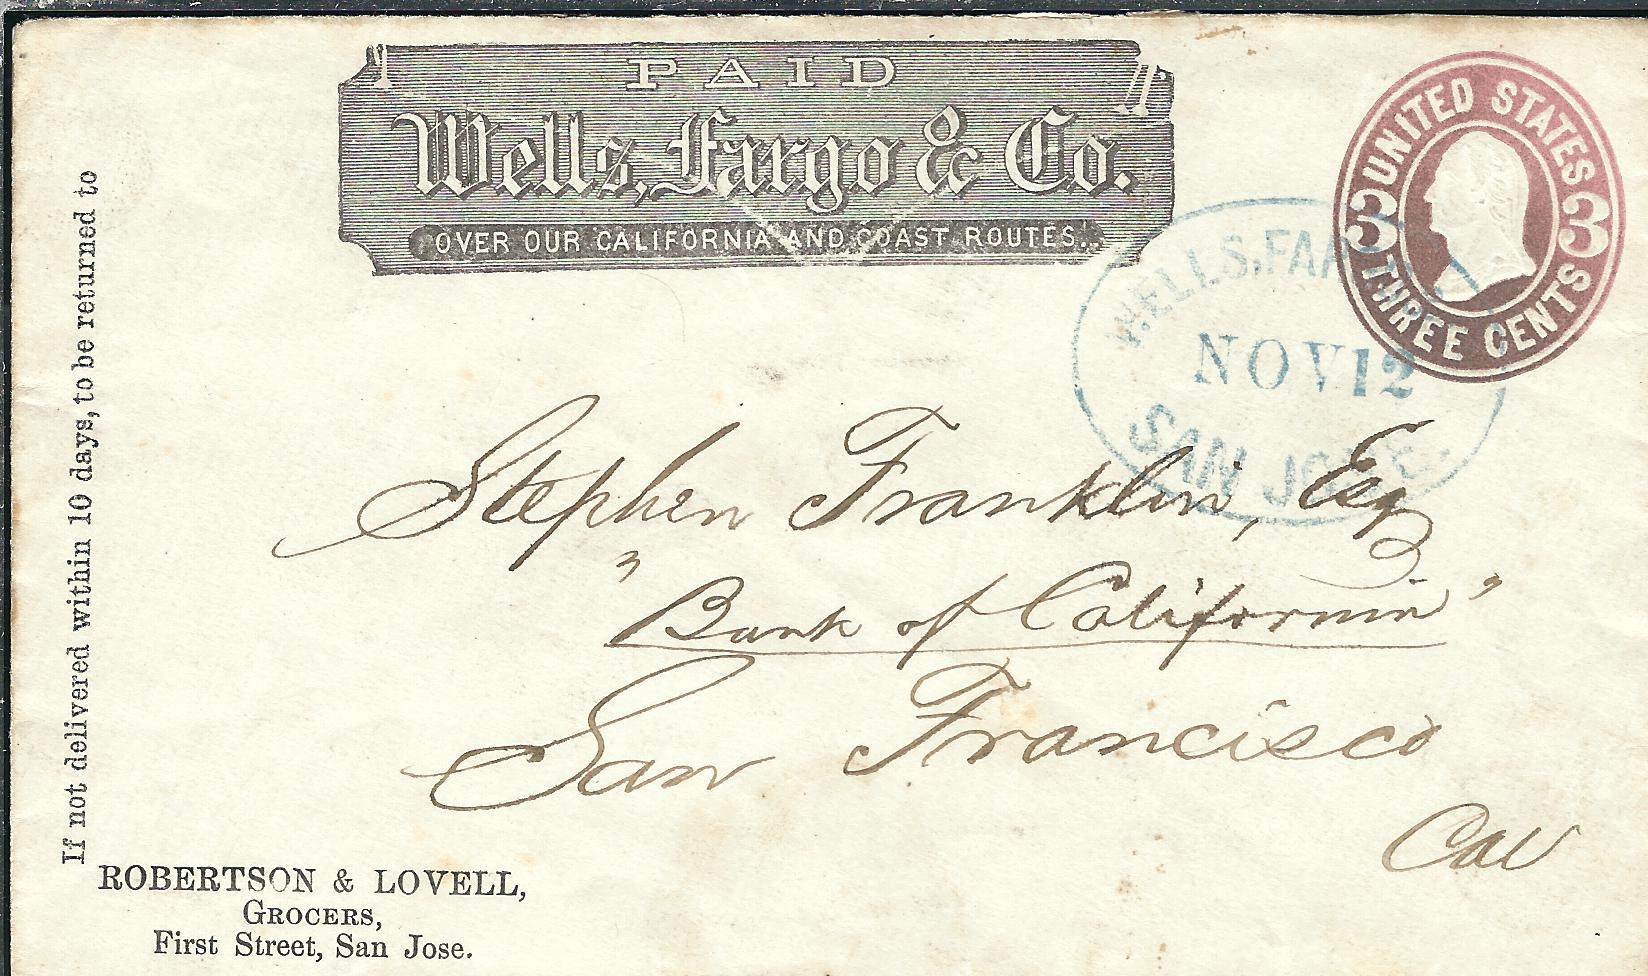 PAID
Wells, Fargo & Co.
OVER OUR CALIFORNIA AND COAST ROUTES.
UNITED STATES
3 3
THREE CENTS
WELLS, FARGO
NOV 12
SAN JOSE.
Stephen Franklin, Esq
"Bank of California"
San Francisco
Cal
If not delivered within 10 days, to be returned to
ROBERTSON & LOVELL,
GROCERS,
First Street, San Jose.